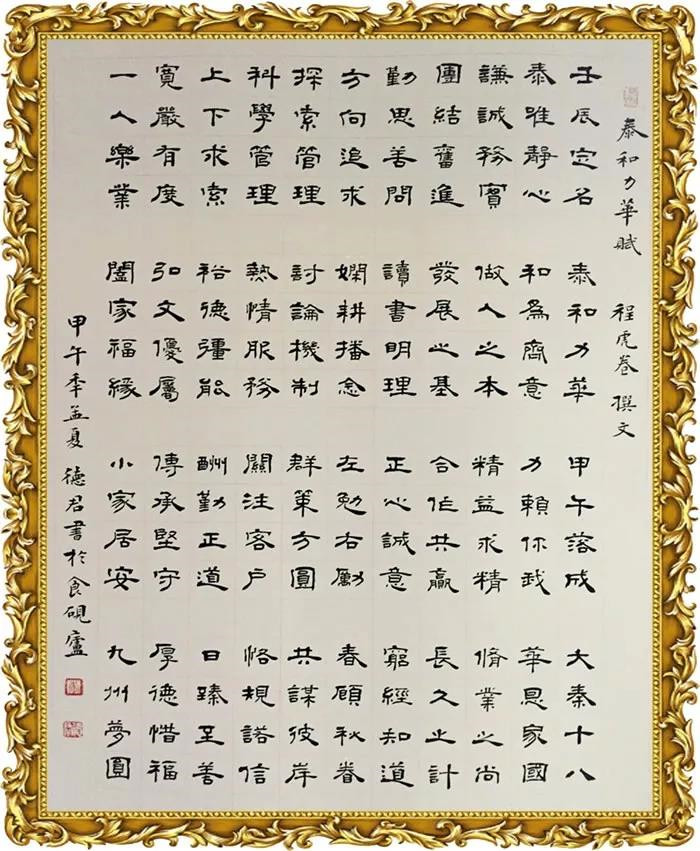 泰和力華賦 程虎卷 撰文
壬辰定名 泰和力華 甲午落成 大秦十八
泰唯靜心 和為齊意 力賴你我 華恩家國
謙誠務實 做人之本 精益求精 脩業之尚
團結奮進 發展之基 合作共贏 長久之計
勤思善問 讀書明理 正心誠意 窮經知道
方向追求 嫻耕播念 左勉右勵 春顧秋眷
探索管理 討論機制 群策方圓 共謀彼岸
科學管理 熱情服務 關注客戶 恪規諾信
上下求索 裕德彊能 酬勤正道 日臻至善
寬嚴有度 弘文優屬 傳承堅守 厚德惜福
一人樂業 闔家福緣 小家居安 九州夢圓
甲午秊孟夏 德君書於食硯廬